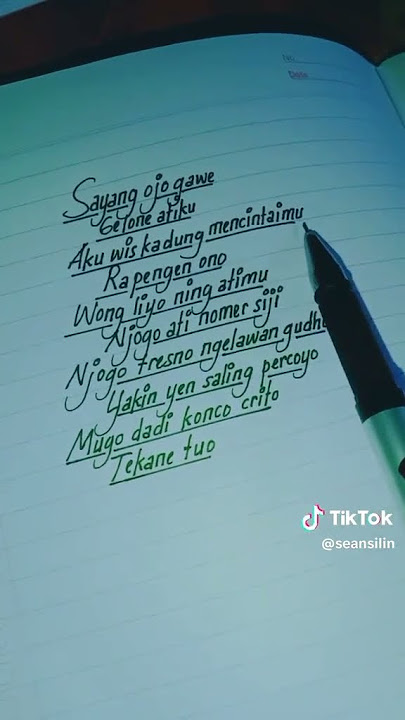 No:
Date:
Sayang ojo gawe
Gelone atiku
Aku wis kadung mencintaimu
Ra pengen ono
Wong liyo ning atimu
Njogo ati nomer siji
Njogo tresno ngelawan gudh
Yakin yen saling percoyo
Mugo dadi konco crito
Tekane tuo
TikTok
@seansilin